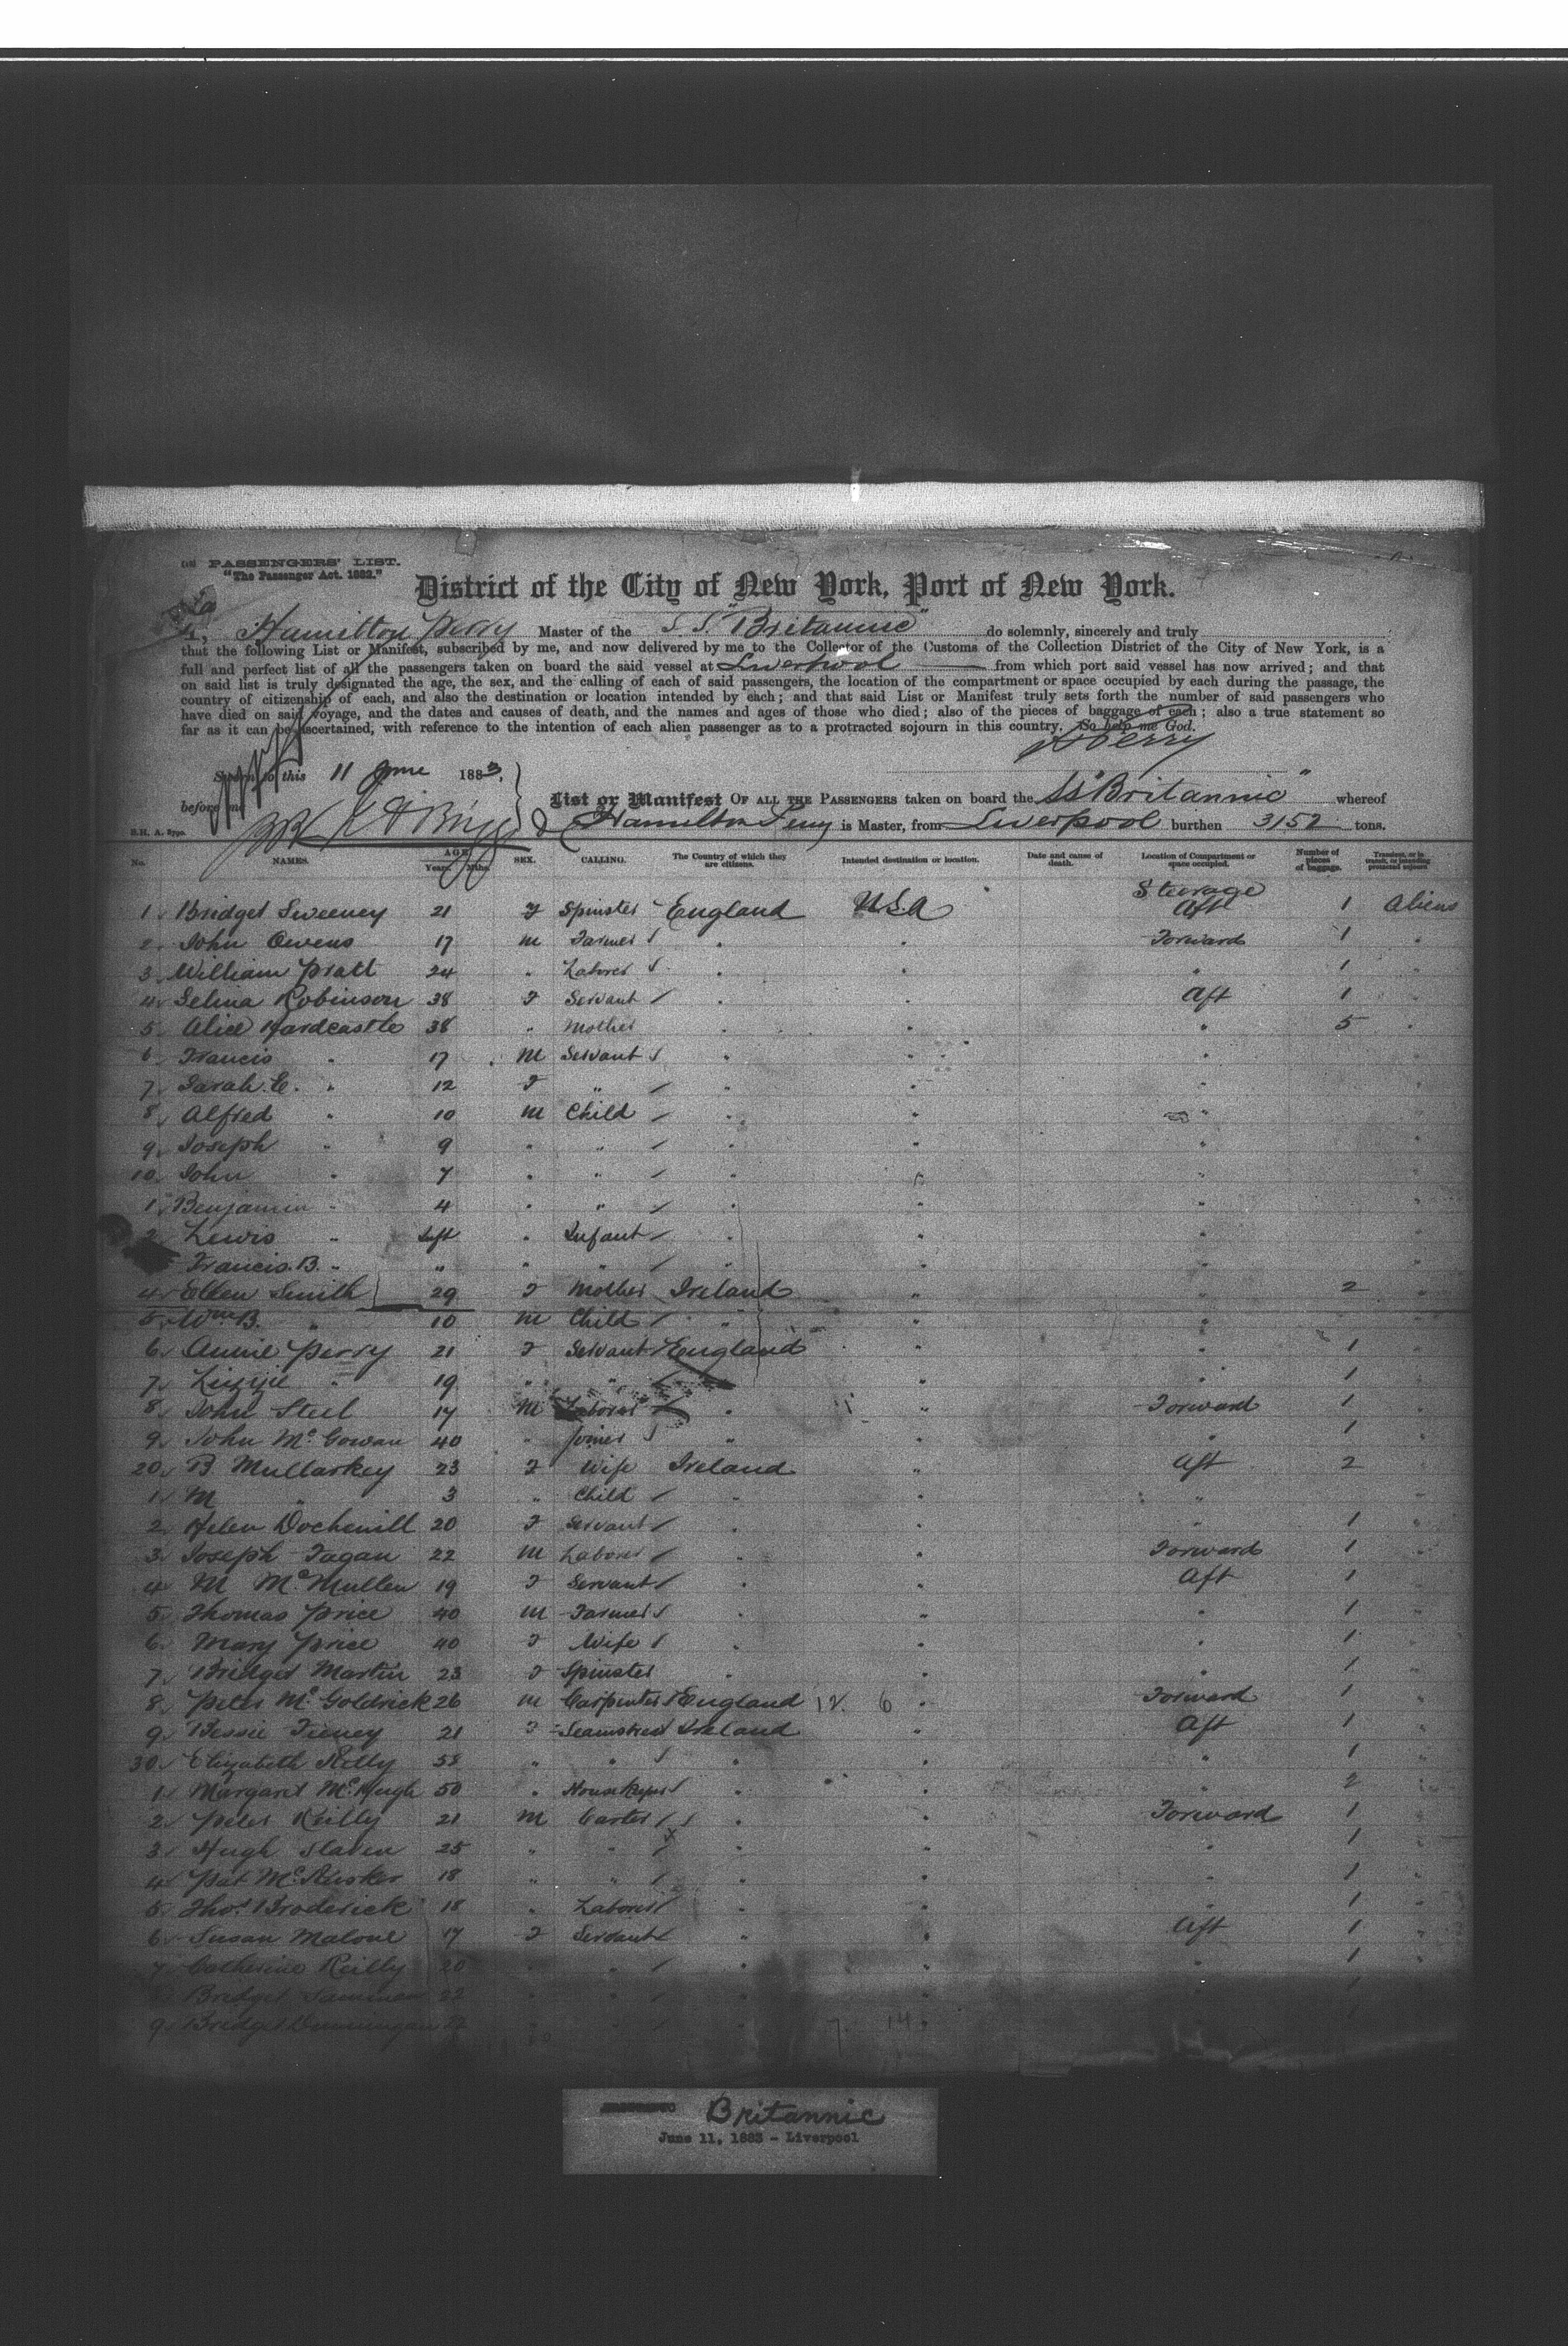 PASSENGERS' LIST.
"The Passenger Act. 1882."
District of the City of New York, Port of New York.
I, Hamilton Perry Master of the S.S. "Britannic" do solemnly, sincerely and truly
that the following List or Manifest, subscribed by me, and now delivered by me to the Collector of the Customs of the Collection District of the City of New York, is a
full and perfect list of all the passengers taken on board the said vessel at Liverpool from which port said vessel has now arrived; and that
on said list is truly designated the age, the sex, and the calling of each of said passengers, the location of the compartment or space occupied by each during the passage, the
country of citizenship of each, and also the destination or location intended by each; and that said List or Manifest truly sets forth the number of said passengers who
have died on said voyage, and the dates and causes of death, and the names and ages of those who died; also of the pieces of baggage of each; also a true statement so
far as it can be ascertained, with reference to the intention of each alien passenger as to a protracted sojourn in this country. So help me God.
H Perry
Sworn to this 11 June 1883,
before me
List or Manifest OF ALL THE PASSENGERS taken on board the SS "Britannic" whereof
Hamilton Perry is Master, from Liverpool burthen 3152 tons.
No. NAMES. AGE Years. Mths. SEX. CALLING. The Country of which they are citizens. Intended destination or location. Date and cause of death. Location of Compartment or space occupied. Number of pieces of baggage. Transient, or in transit, or intending protracted sojourn
Steerage
1 Bridget Sweeney 21 F Spinster England USA Aft 1 Aliens
2 John Owens 17 M Farmer " " Forward 1 "
3 William Pratt 24 " Laborer " " " 1 "
4 Selina Robinson 38 F Servant " " Aft 1 "
5 Alice Hardcastle 38 " Mother " " " 5 "
6 Francis " 17 M Servant " " "
7 Sarah E. " 12 F " " " "
8 Alfred " 10 M Child " " "
9 Joseph " 9 " " " " "
10 John " 7 " " " " "
1 Benjamin " 4 " " " " "
2 Lewis " Inft " Infant " " "
Francis B. " " " " " " "
4 Ellen Smith 29 F Mother Ireland " " 2 "
5 Wm B. " 10 M Child " " "
6 Annie Perry 21 F Servant England " " 1 "
7 Lizzie " 19 " " " " 1 "
8 John Steel 17 M Laborer " " Forward 1 "
9 John McGowan 40 " Joiner " " " 1 "
20 B. Mullarkey 23 F Wife Ireland " Aft 2 "
1 M " 3 " Child " " "
2 Helen 20 F Servant " " " 1 "
3 Joseph Fagan 22 M Laborer " " Forward 1 "
4 M McMullen 19 F Servant " " Aft 1 "
5 Thomas Price 40 M Farmer " " " 1 "
6 Mary Price 40 F Wife " " " 1 "
7 Bridget Martin 23 F Spinster " " " 1 "
8 Peter McGoldrick 26 M Carpenter England 12. 6 " Forward 1 "
9 Bessie 21 F Seamstress Ireland " Aft 1 "
30 Elizabeth Reilly 58 " " " " " 1 "
1 Margaret McHugh 50 " HouseKeeper " " " 2 "
2 Peter Reilly 21 M Carter " " Forward 1 "
3 Hugh Slaven 25 " " " " " 1 "
4 Pat McCusker 18 " " " " " 1 "
5 Thos Broderick 18 " Laborer " " " 1 "
6 Susan Malone 17 F Servant " " Aft 1 "
7 Catherine Reilly 20 " " " " " 1 "
Bridget 22 " " " "
9 Bridget " " " 7. 14 "
Britannic
June 11, 1883 - Liverpool